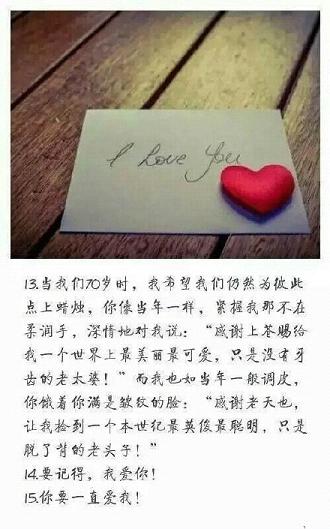 I Love You
13.当我们70岁时，我希望我们仍然为彼此
点上蜡烛，你像当年一样，紧握我那不在
柔润手，深情地对我说：“感谢上苍赐给
我一个世界上最美丽最可爱，只是没有牙
齿的老太婆！”而我也如当年一般调皮，
你皱着你满是皱纹的脸：“感谢老天也，
让我捡到一个本世纪最英俊最聪明，只是
脱了背的老头子！”
14.要记得，我爱你！
15.你要一直爱我！